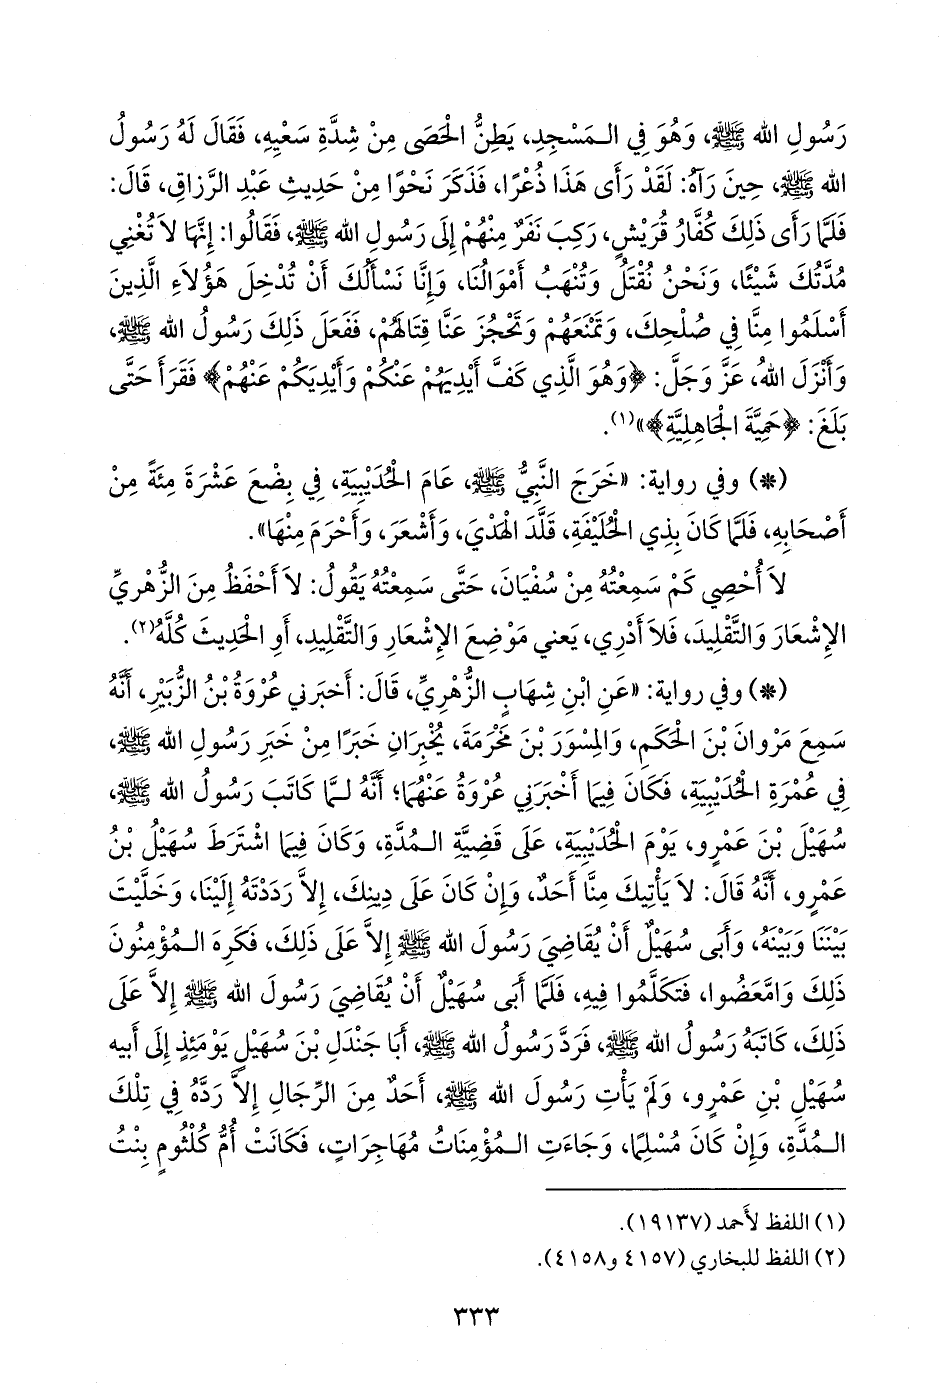 رَسُولِ الله ﷺ، وَهُوَ فِي الـمَسْجِدِ، يَطِنُّ الْحَصَى مِنْ شِدَّةِ سَعْيِهِ، فَقَالَ لَهُ رَسُولُ
الله ﷺ، حِينَ رَآهُ: لَقَدْ رَأَى هَذَا ذُعْرًا، فَذَكَرَ نَحْوًا مِنْ حَدِيثِ عَبْدِ الرَّزاقِ، قَالَ:
فَلَمَّا رَأَى ذَلِكَ كُفَّارُ قُرَيْشٍ، رَكِبَ نَفَرٌ مِنْهُمْ إِلَى رَسُولِ الله ﷺ، فَقَالُوا: إِنَّهَا لاَ تُغْنِي
مُدَّتُكَ شَيْئًا، وَنَحْنُ نُقْتَلُ وَتُنْهَبُ أَمْوَالُنَا، وَإِنَّا نَسْأَلُكَ أَنْ تُدْخِلَ هَؤُلاَءِ الَّذِينَ
أَسْلَمُوا مِنَّا فِي صُلْحِكَ، وَتَمْنَعَهُمْ وَتَحْجُزَ عَنَّا قِتَالَهُمْ، فَفَعَلَ ذَلِكَ رَسُولُ الله ﷺ،
وَأَنْزَلَ اللهُ، عَزَّ وَجَلَّ: ﴿وَهُوَ الَّذِي كَفَّ أَيْدِيَهُمْ عَنْكُمْ وَأَيْدِيَكُمْ عَنْهُمْ﴾ فَقَرَأَ حَتَّى
بَلَغَ: ﴿حَمِيَّةَ الْجَاهِلِيَّةِ﴾»(١).
(*) وفي رواية: «خَرَجَ النَّبِيُّ ﷺ، عَامَ الْحُدَيْبِيَةِ، فِي بِضْعَ عَشْرَةَ مِئَةً مِنْ
أَصْحَابِهِ، فَلَمَّا كَانَ بِذِي الْحُلَيْفَةِ، قَلَّدَ الْهَدْيَ، وَأَشْعَرَ، وَأَحْرَمَ مِنْهَا».
لاَ أُحْصِي كَمْ سَمِعْتُهُ مِنْ سُفْيَانَ، حَتَّى سَمِعْتُهُ يَقُولُ: لاَ أَحْفَظُ مِنَ الزُّهْرِيِّ
الإِشْعَارَ وَالتَّقْلِيدَ، فَلاَ أَدْرِي، يَعني مَوْضِعَ الإِشْعَارِ وَالتَّقْلِيدِ، أَوِ الْحَدِيثَ كُلَّهُ(٢).
(*) وفي رواية: «عَنِ ابْنِ شِهَابٍ الزُّهْرِيِّ، قَالَ: أَخبَرني عُرْوَةُ بْنُ الزُّبَيْرِ، أَنَّهُ
سَمِعَ مَرْوَانَ بْنَ الْحَكَمِ، وَالمِسْوَرَ بْنَ مَخْرَمَةَ، يُخْبِرَانِ خَبَرًا مِنْ خَبَرِ رَسُولِ الله ﷺ،
فِي عُمْرَةِ الْحُدَيْبِيَةِ، فَكَانَ فِيمَا أَخْبَرَنِي عُرْوَةُ عَنْهُمَا؛ أَنَّهُ لـمَّا كَاتَبَ رَسُولُ الله ﷺ،
سُهَيْلَ بْنَ عَمْرٍو، يَوْمَ الْحُدَيْبِيَةِ، عَلَى قَضِيَّةِ الـمُدَّةِ، وَكَانَ فِيمَا اشْتَرَطَ سُهَيْلُ بْنُ
عَمْرٍو، أَنَّهُ قَالَ: لاَ يَأْتِيكَ مِنَّا أَحَدٌ، وَإِنْ كَانَ عَلَى دِينِكَ، إِلاَّ رَدَدْتَهُ إِلَيْنَا، وَخَلَّيْتَ
بَيْنَنَا وَبَيْنَهُ، وَأَبَى سُهَيْلٌ أَنْ يُقَاضِيَ رَسُولَ الله ﷺ إِلاَّ عَلَى ذَلِكَ، فَكَرِهَ الـمُؤْمِنُونَ
ذَلِكَ وَامَّعَضُوا، فَتَكَلَّمُوا فِيهِ، فَلَمَّا أَبَى سُهَيْلٌ أَنْ يُقَاضِيَ رَسُولَ الله ﷺ إِلاَّ عَلَى
ذَلِكَ، كَاتَبَهُ رَسُولُ الله ﷺ، فَرَدَّ رَسُولُ الله ﷺ، أَبَا جَنْدَلِ بْنَ سُهَيْلٍ يَوْمَئِذٍ إِلَى أَبيه
سُهَيْلِ بْنِ عَمْرٍو، وَلَمْ يَأْتِ رَسُولَ الله ﷺ، أَحَدٌ مِنَ الرِّجَالِ إِلاَّ رَدَّهُ فِي تِلْكَ
الـمُدَّةِ، وَإِنْ كَانَ مُسْلِمًا، وَجَاءَتِ الـمُؤْمِنَاتُ مُهَاجِرَاتٍ، فَكَانَتْ أُمُّ كُلْثُومٍ بِنْتُ
(١) اللفظ لأَحمد (١٩١٣٧).
(٢) اللفظ للبخاري (٤١٥٧ و٤١٥٨).
٣٣٣